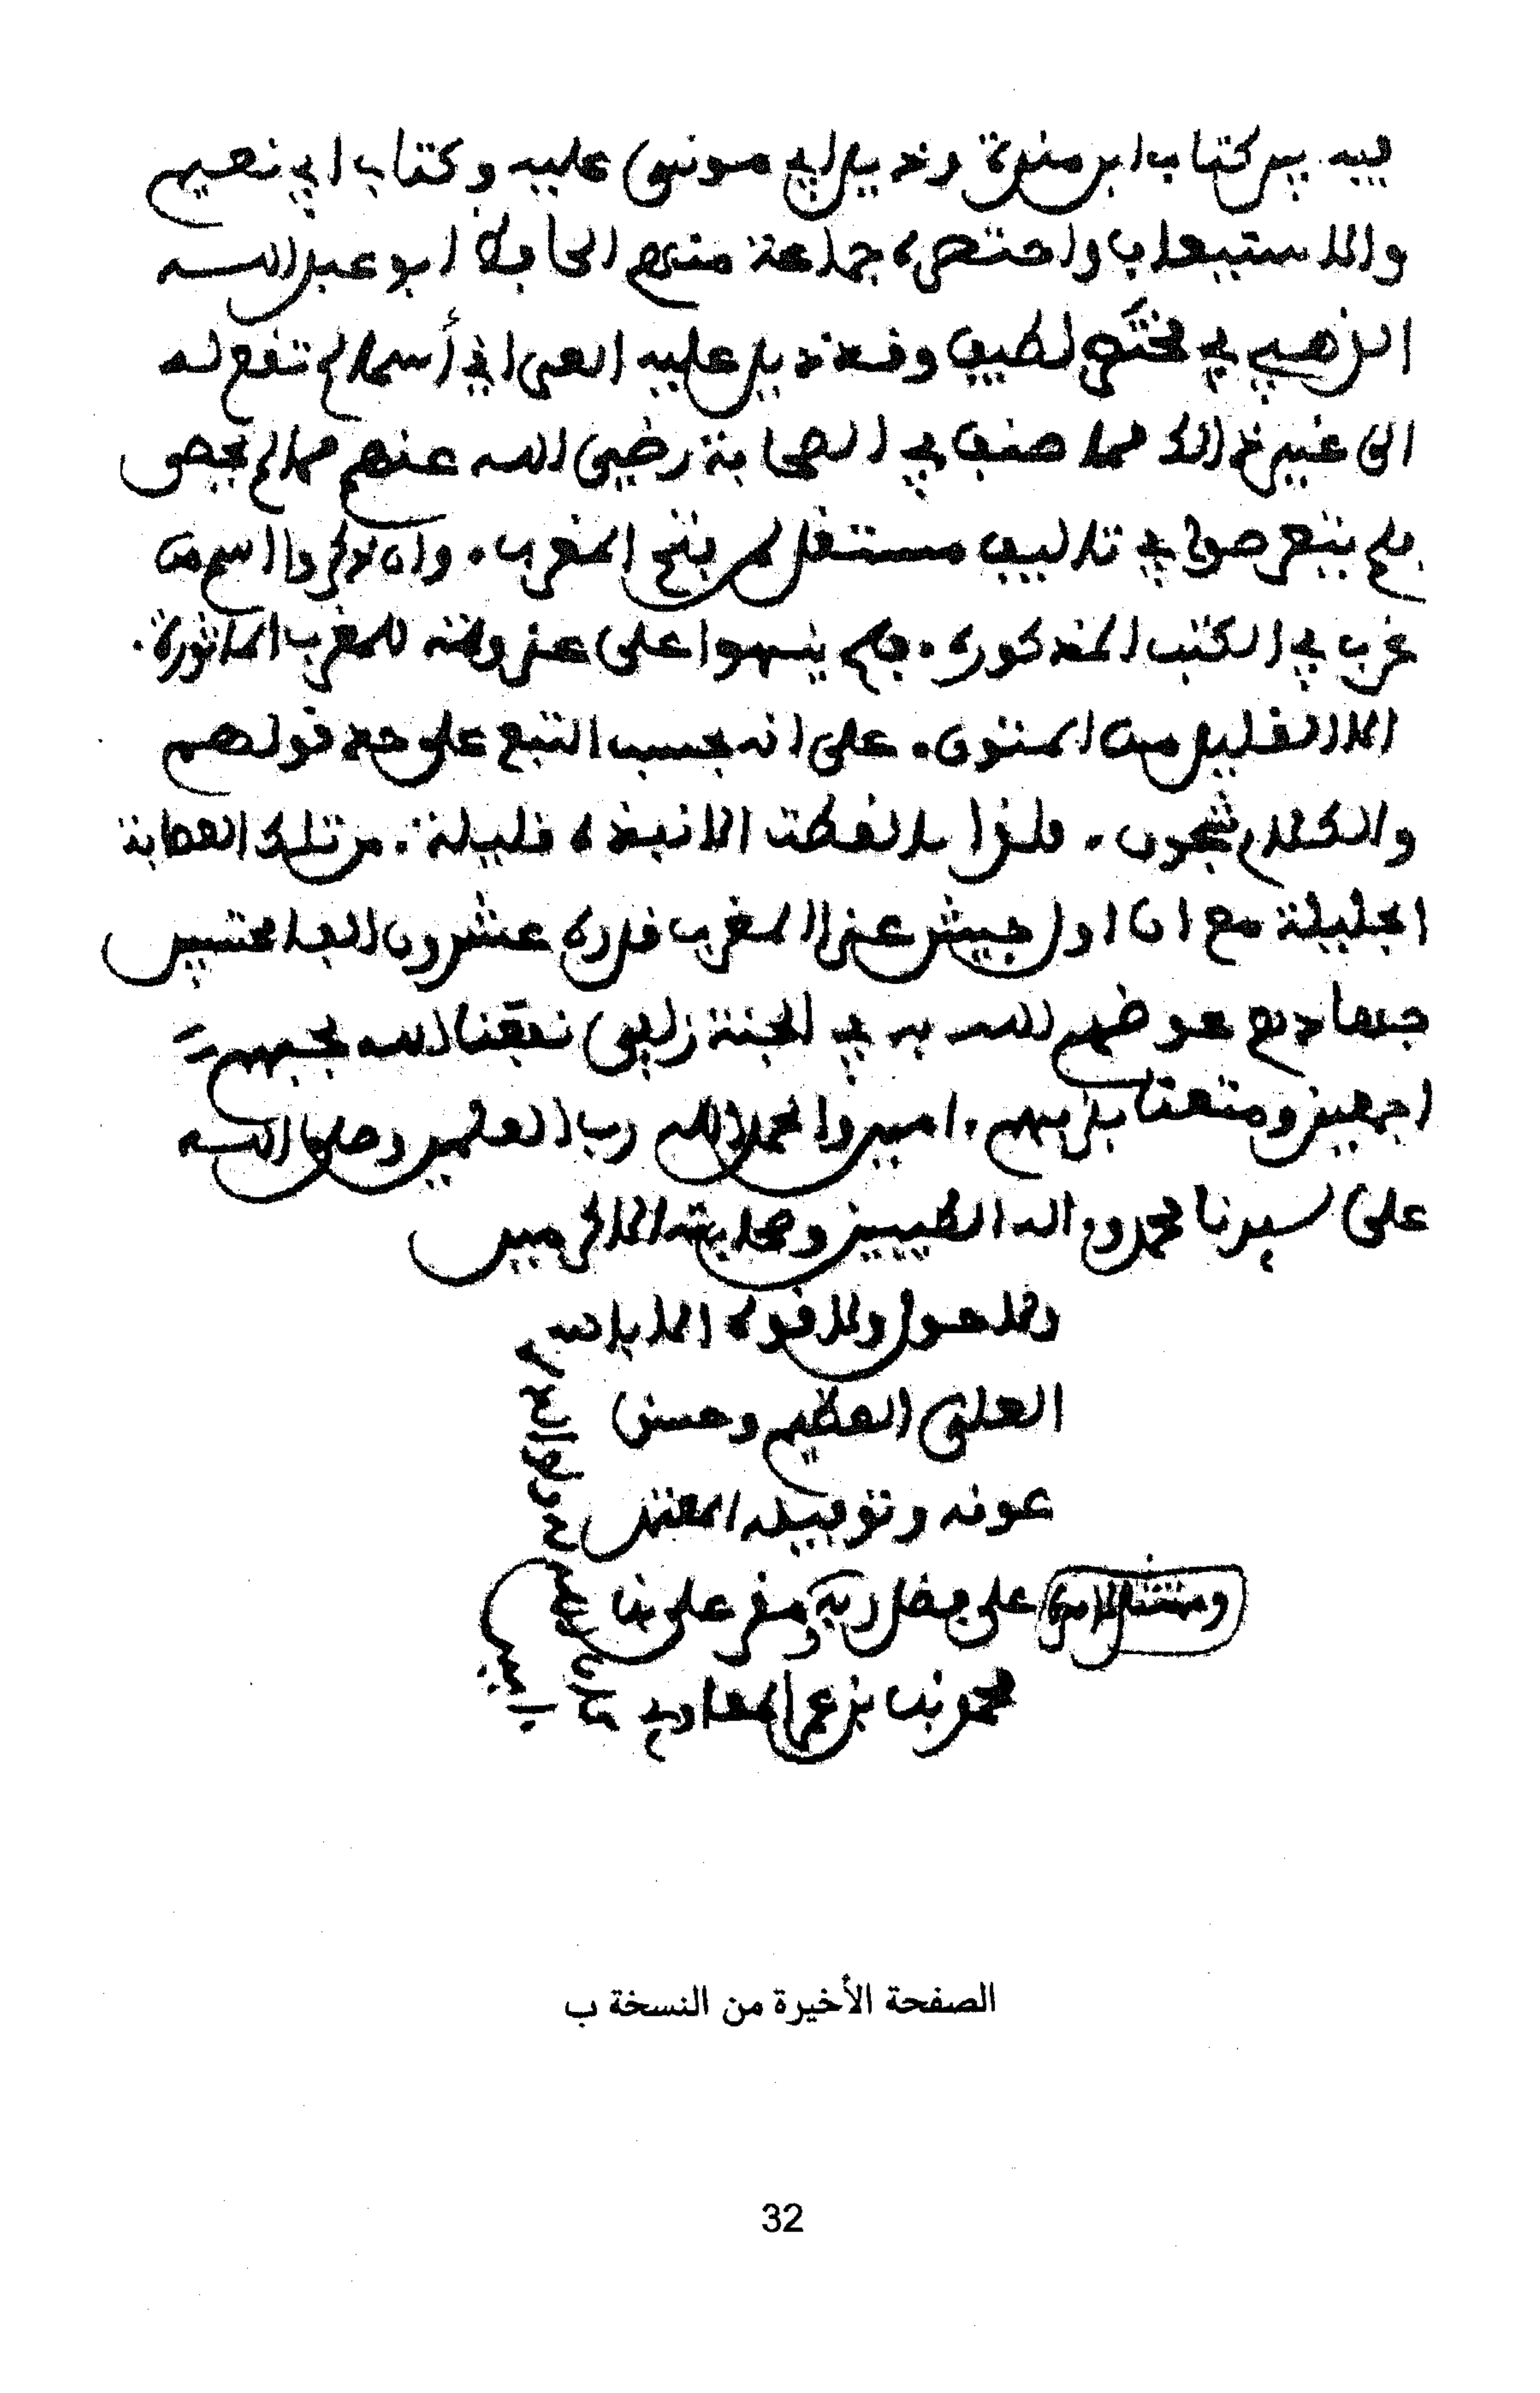 فيه بين كتاب ابن مندة وذيل ابي موسى عليه وكتاب ابي نعيم
والاستيعاب واختصره جماعة منهم الحافظ ابو عبد الله
الذهبي في مختصر لطيف وقد ذيل عليه العراقي أسماء لم تقع له
الى غير ذالك مما صنف في الصحابة رضي الله عنهم مما لم يحص
فلم يتعرضوا في تاليف مستقل لمن فتح المغرب. وان ذكروا اسم من
غرب في الكتب المذكوره. فلم ينبهوا على غزواته للمغرب الماثورة.
الا القليل من المتون. على انه بحسب التبع على حد قولهم
والكلام شجون. فلذا التقطت الا نبذة قليلة. من تلك العصابة
الجليلة مع ان اول جيش غزا المغرب قدره عشرون الفا محتسبين
جهادهم عوضهم الله به في الجنة زلفى نفعنا الله بحبهم
اجمعين ومتعنا بقربهم. امين والحمد لله رب العلمين وصلى الله
على سيدنا محمد وءاله الطيبين وصحابته الاكرمين
ولا حول ولا قوة الا بالله
العلى العظيم وحسن
عونه وتوفيقه
على فضل ربه
محمد بن
الصفحة الأخيرة من النسخة ب
32